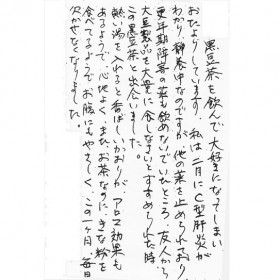 黒豆茶を飲んで大好きになってしまい
おたよりしています。私は二月にC型肝炎が
わかり、静養中なのですが、他の薬を止められており
更年期障害の薬も飲めないでいたところ友人から
大豆製品を大量に食しなさいとすすめられた時
この黒豆茶と出会いました。
熱い湯を入れると香ばしいかおりがアロマ効果も
あるようで、心地よく、またお茶なのに、きな粉を
食べてるようで、お腹にもやさしく、この一ヶ月、毎日
欠かせなくなりました。